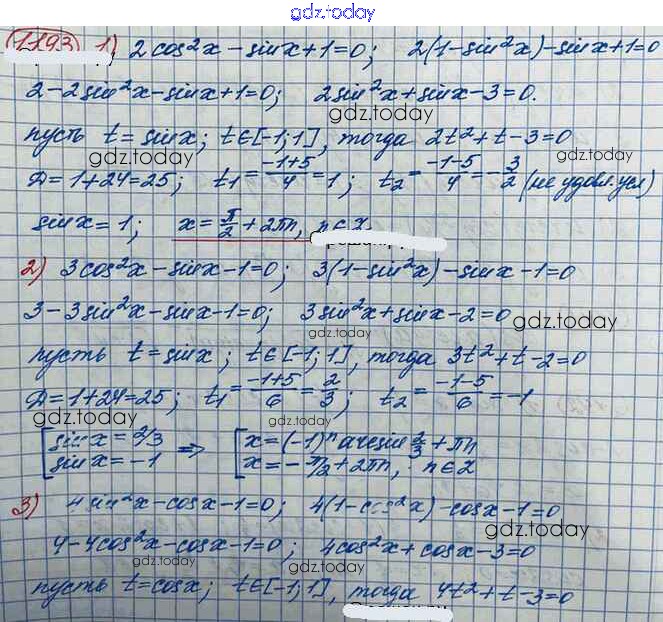 gdz.today
1193 1) 2cos²x - sinx + 1 = 0; 2(1 - sin²x) - sinx + 1 = 0
2 - 2sin²x - sinx + 1 = 0; 2sin²x + sinx - 3 = 0.
gdz.today
пусть t = sinx; t∈[-1;1], тогда 2t² + t - 3 = 0
gdz.today gdz.today
Д = 1+24 = 25; t₁ = (-1+5)/4 = 1; t₂ = (-1-5)/4 = -3/2 (не удовл. усл)
sinx = 1; x = π/2 + 2πn, n∈Z
2) 3cos²x - sinx - 1 = 0; 3(1 - sin²x) - sinx - 1 = 0
3 - 3sin²x - sinx - 1 = 0; 3sin²x + sinx - 2 = 0
gdz.today gdz.today
пусть t = sinx; t∈[-1;1], тогда 3t² + t - 2 = 0
Д = 1+24 = 25; t₁ = (-1+5)/6 = 2/3; t₂ = (-1-5)/6 = -1
gdz.today gdz.today
[sinx = 2/3 ⇒ [x = (-1)ⁿ arcsin 2/3 + πn
sinx = -1 x = -π/2 + 2πn, n∈Z
3) 4sin²x - cosx - 1 = 0; 4(1 - cos²x) - cosx - 1 = 0
gdz.today
4 - 4cos²x - cosx - 1 = 0; 4cos²x + cosx - 3 = 0
gdz.today gdz.today
пусть t = cosx; t∈[-1;1], тогда 4t² + t - 3 = 0